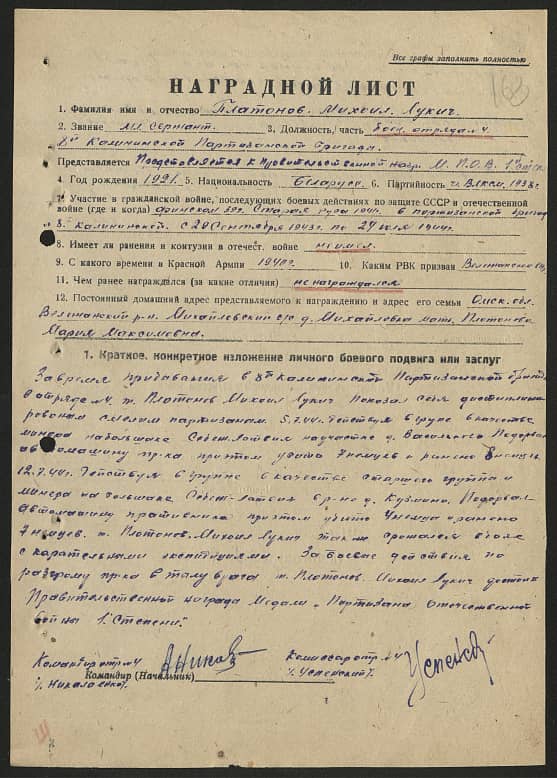 Все графы заполнять полностью
163
НАГРАДНОЙ ЛИСТ
1. Фамилия имя и отчество Платонов Михаил Лукич.
2. Звание мл. Сержант. 3. Должность, часть боец отряда №4
8й Калининской Партизанской бригады.
Представляется Представляется к правительственной нагр. М. П. О. В. 1й степ.
4. Год рождения 1921. 5. Национальность Беларус. 6. Партийность чл. ВЛКСМ. 1938г.
7. Участие в гражданской войне, последующих боевых действиях по защите СССР и отечественной
войне (где и когда) финском 39г. Старая руса 1941г. в партизанской бригаде
8й Калининской. с 29 Сентября 1943г. по 24 июля 1944г.
8. Имеет ли ранения и контузии в отечест. войне не имел.
9. С какого времени в Красной Армии 1940г. 10. Каким РВК призван
11. Чем ранее награждался (за какие отличия) не награждался
12. Постоянный домашний адрес представляемого к награждению и адрес его семьи Омск. обл.
р-н. Михайлевский с/с д. Михайловка мать. Платонова
Мария Максимовна.
1. Краткое, конкретное изложение личного боевого подвига или заслуг
За время прибывания в 8й Калининской Партизанской бригаде
в отряде №4. т. Платонов Михаил Лукич показал себя дисциплини
рованым смелым партизаном. 5.7.44г. Действуя в групе в качестве
минера на большаке Себеж-Латвия на участке д. Подорвал
автомашину пр-ка притом убито 7 немцев и ранено 8 немцев.
12.7.44г. Действуя в групе в качестве старшего группы и
минера на большаке Себеж-Латвия в р-не д. Кузмино. Подорвал
автомашину противника притом убито 4 немца и ранено
7 немцев. т. Платонов. Михаил Лукич так же сражался в боях
с карательными экспедициями. За боевые действия по
разгрому пр-ка в тылу врага т. Платонов. Михаил Лукич достоин
Правительственной награда Медали "Партизана Отечественной
войны 1й Степени".
Командир отр. №4 Комиссар отр. №4
Командир (Начальник)
/Николаенко/. /Успенский/.